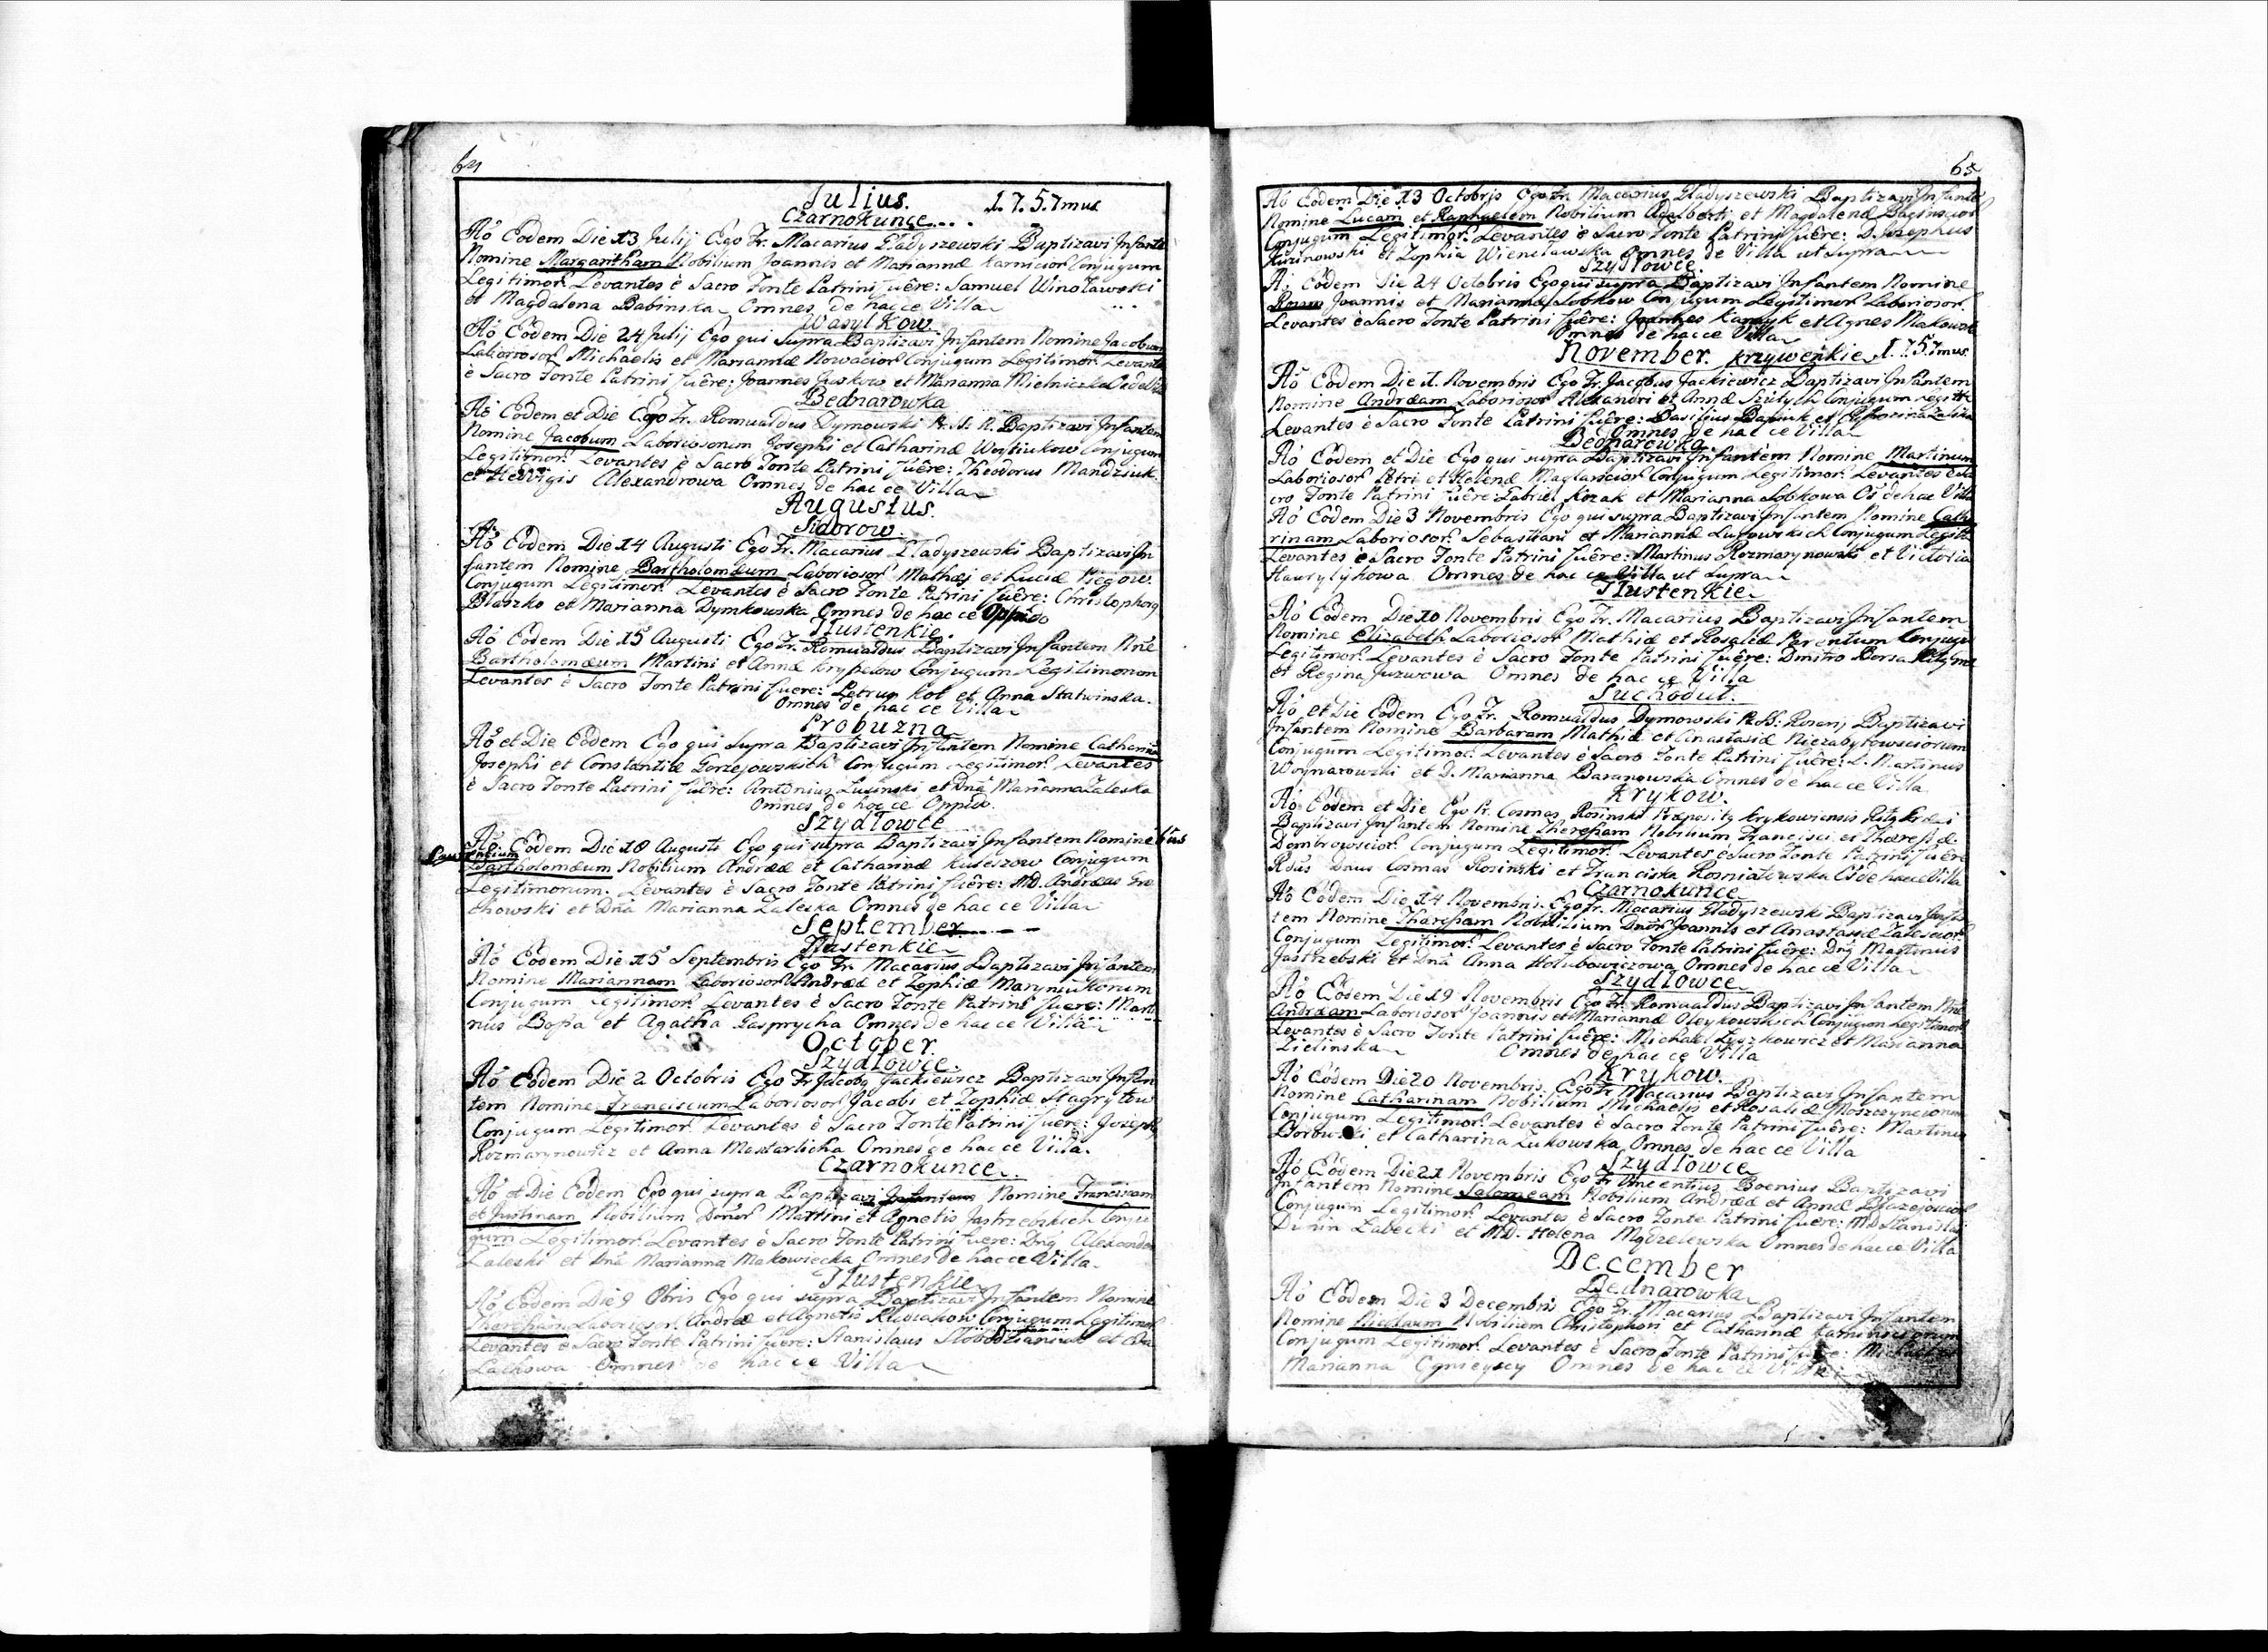 64
Julius. 1.7.5.7mus
Czarnokunce...
Aô Eodem Die 13 Julij Ego Fr. Macarius Gładyszewski Baptizavi Infante
Nomine Margaritham Nobilium Joannis et Mariannæ Karnicior Conjugum
Legitimor. Levantes è Sacro Fonte Patrini fuêre: Samuel Winoławski
et Magdalena Babinska Omnes de hac ce Villa
Wasylkow
Aô Eodem Die 24 Julij Ego qui Supra Baptizavi Infantem Nomine Jacobum
Laboriosor Michaelis et Mariannæ Nowacior Conjugum Legitimor Levante
è Sacro Fonte Patrini fuêre: Joannes Juskow et Marianna Mielniczka
Bednarowka
Aô Eodem et Die Ego Fr. Romualdus Dymowski Baptizavi Infantem
Nomine Jacobum Laboriosorum Josephi et Catharinæ Conjugum
Legitimor Levantes è Sacro Fonte Patrini fuêre: Theodorus Mandziuk
et Hedvigis Alexandrowa Omnes de hac ce Villa
Augustus.
Sidorow.
Aô Eodem Die 14 Augusti Ego Fr. Macarius Gładyszewski Baptizavi In
fantem Nomine Bartholomæum Laboriosor Mathæj et Luciæ
Conjugum Legitimor Levantes è Sacro Fonte Patrini fuêre: Christophorg
Błaszko et Marianna Dymkowska Omnes de hac ce Oppido
Tłustenkie.
Aô Eodem Die 15 Augusti Ego Fr. Romualdus Baptizavi Infantem Nne
Bartholomæum Martini et Annæ Conjugum Legitimorum
Levantes è Sacro Fonte Patrini fuere: Petrus Kot et Anna Statwinska.
Omnes de hac ce Villa
Probuzna
Aô et Die Eodem Ego qui Supra Baptizavi Infantem Nomine Catharina
Josephi et Constantiæ Gorzejowskich Conjugum Legitimor Levantes
è Sacro Fonte Patrini fuêre: Antonius Lusinski et Dnã Marianna Zaleska
Omnes de hac ce Oppido.
Szydłowce
Aô Eodem Die 18 Augusti Ego qui supra Baptizavi Infantem Nominebus
Laurentium
Bartholomæum Nobilium Andreæ et Catharinæ Kuleszow Conjugum
Legitimorum. Levantes è Sacro Fonte Patrini fuêre: MD. Andreas Gro
chowski et Dnã Marianna Zaleska Omnes de hac ce Villa
September
Tłustenkie
Aô Eodem Die 15 Septembris Ego Fr. Macarius Baptizavi Infantem
Nomine Mariannam Laboriosor Andreæ et Zophiæ Maryniukorum
Conjugum Legitimor Levantes è Sacro Fonte Patrini fuere: Marti
nus Bossa et Agatha Gasprycha Omnes de hac ce Villa
October.
Szydłowce.
Aô Eodem Die 2 Octobris Ego Fr Jacobg Jackiewicz Baptizavi Infan
tem Nomine Franciscum Laboriosor Jacobi et Zophiæ
Conjugum Legitimor Levantes è Sacro Fonte Patrini fuêre: Joseph
Rozmarynowicz et Anna Omnes de hac ce Villa.
Czarnokunce
Aô et Die Eodem Ego qui supra Baptizavi Infantem Nomine Franciscam
et Justinam Nobilium Martini et Agnetis Jastrzebskich Conju
gum Legitimor. Levantes è Sacro Fonte Patrini fuere: Dng Alexander
Zaleski et Dnã Marianna Makowiecka Omnes de hac ce Villa.
Tłustenkie
Aô Eodem Die 9 8bris Ego qui supra Baptizavi Infantem Nomine
Theressiam Laboriosor Andreæ et Agnetis Conjugum Legitimor
Levantes è Sacro Fonte Patrini fuêre: Stanislaus et
Lachowa Omnes de hac ce Villa
65
Aô Eodem Die 13 Octobris Ego Fr. Macarius Gładyszewski Baptizavi Infante
Nomine Lucam et Raphaelem Nobilium Adalberti et Magdalenæ
Conjugum Legitimor. Levantes è Sacro Fonte Patrini fuêre: D. Josephus
et Zophia Omnes de Villa ut supra
Szydłowce.
Aô Eodem Die 24 Octobris Ego qui supra Baptizavi Infantem Nomine
Joannis et Mariannæ Lobkow Conjugum Legitimor Laboriosor.
Levantes è Sacro Fonte Patrini fuêre: Joannes et Agnes
Omnes de hac ce Villa
November. Krzywenkie 1.7.5.7mus.
Aô Eodem Die 1. Novembris Ego Fr. Jacobus Jackiewicz Baptizavi Infantem
Nomine Andreæam Laboriosor Alexandri et Annæ Conjugum Legitti
Levantes è Sacro Fonte Patrini fuêre: Basilius et
Omnes de hac ce Villa
Bednarowka
Aô Eodem et Die Ego qui supra Baptizavi Infantem Nomine Martinum
Laboriosor Petri et Helenæ Conjugum Legitimor. Levantes è Sa
cro Fonte Patrini fuêre Gabriel Kozak et Marianna Lobkowa Os de hac Villa
Aô Eodem Die 3 Novembris Ego qui supra Baptizavi Infantem Nomine Catha
rinam Laboriosor. Sebastiani et Mariannæ Conjugum Legitti
Levantes è Sacro Fonte Patrini fuêre: Martinus Rozmarynowski et Victoria
Hawrylykowa Omnes de hac ce Villa ut supra
Tłustenkie
Aô Eodem Die 10 Novembris Ego Fr. Macarius Baptizavi Infantem
Nomine Elizabeth Laboriosor Mathiæ et Rosaliæ Parentum Conjugu
Legitimor. Levantes è Sacro Fonte Patrini fuêre: Dmitro Borsa
et Regina Juzwowa Omnes de hac ce Villa
Suchoduł.
Aô et Die Eodem Ego Fr. Romualdus Dymowski Baptizavi
Infantem Nomine Barbaram Mathiæ et Anastasiæ Niezabytowsciorum
Conjugum Legitimor. Levantes è Sacro Fonte Patrini fuêre: D. Martinus
Woynarowski et D. Marianna Baranowska Omnes de hac ce Villa
Krykow.
Aô Eodem et Die Ego Fr. Cosmas Rosinski Præpositg Krykowiensis
Baptizavi Infantem Nomine Theressiam Nobilium Francisci et Theressiæ
Dombrowscior. Conjugum Legitimor. Levantes è Sacro Fonte Patrini fuêre
Rdus Dnus Cosmas Rosinski et Franciska Kosniatowska Os de hac ce Villa
Czarnokunce
Aô Eodem Die 14 Novembris. Ego Fr. Macarius Gładyszewski Baptizavi Infan
tem Nomine Tharessiam Nobilium Dnor Joannis et Anastasiæ Zalescior
Conjugum Legitimor. Levantes è Sacro Fonte Patrini fuêre: Dng Martinus
Jastrzebski et Dnã Anna Hołubowiczowa Omnes de hac ce Villa
Szydłowce
Aô Eodem Die 19 Novembris Ego Fr. Romualdus Baptizavi Infantem Nne
Andreæam Laboriosor Joannis et Mariannæ Oleykowskich Conjugum Legitimor
Levantes è Sacro Fonte Patrini fuêre: Michael et Marianna
Zielinska Omnes de hac ce Villa
Krykow.
Aô Eodem Die 20 Novembris. Ego Fr Macarius Baptizavi Infantem
Nomine Catharinam Nobilium Michaelis et Rosaliæ
Conjugum Legitimor. Levantes è Sacro Fonte Patrini fuêre: Martinus
Borowski et Catharina Zukowska Omnes de hac ce Villa
Szydłowce
Aô Eodem Die 21 Novembris Ego Fr Vincentius Boenius Baptizavi
Infantem Nomine Salomeam Nobilium Andreæ et Annæ
Conjugum Legitimor Levantes è Sacro Fonte Patrini fuêre: MD Stanislaus
Dunin Łabecki et MD. Helena Omnes de hac ce Villa
December
Bednarowka
Aô Eodem Die 3 Decembris Ego Fr. Macarius Baptizavi Infantem
Nomine Nicolaum Nobilium Christophori et Catharinæ
Conjugum Legitimor. Levantes è Sacro Fonte Patrini fuêre:
Marianna Omnes de hac ce Villa